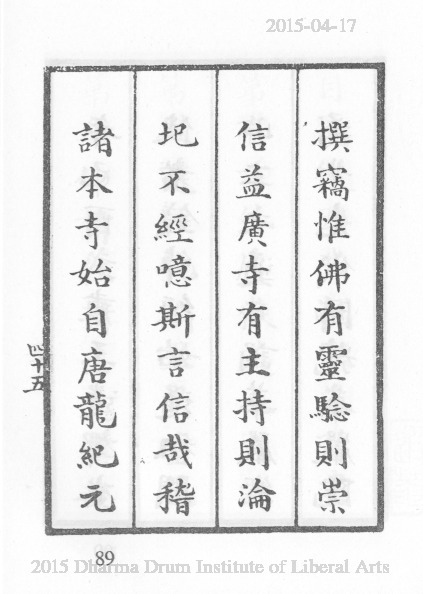 2015-04-17
撰竊惟佛有靈騐則崇
信益廣寺有主持則淪
圯不經噫斯言信哉稽
諸本寺始自唐龍紀元
四十五
89
2015 Dharma Drum Institute of Liberal Arts